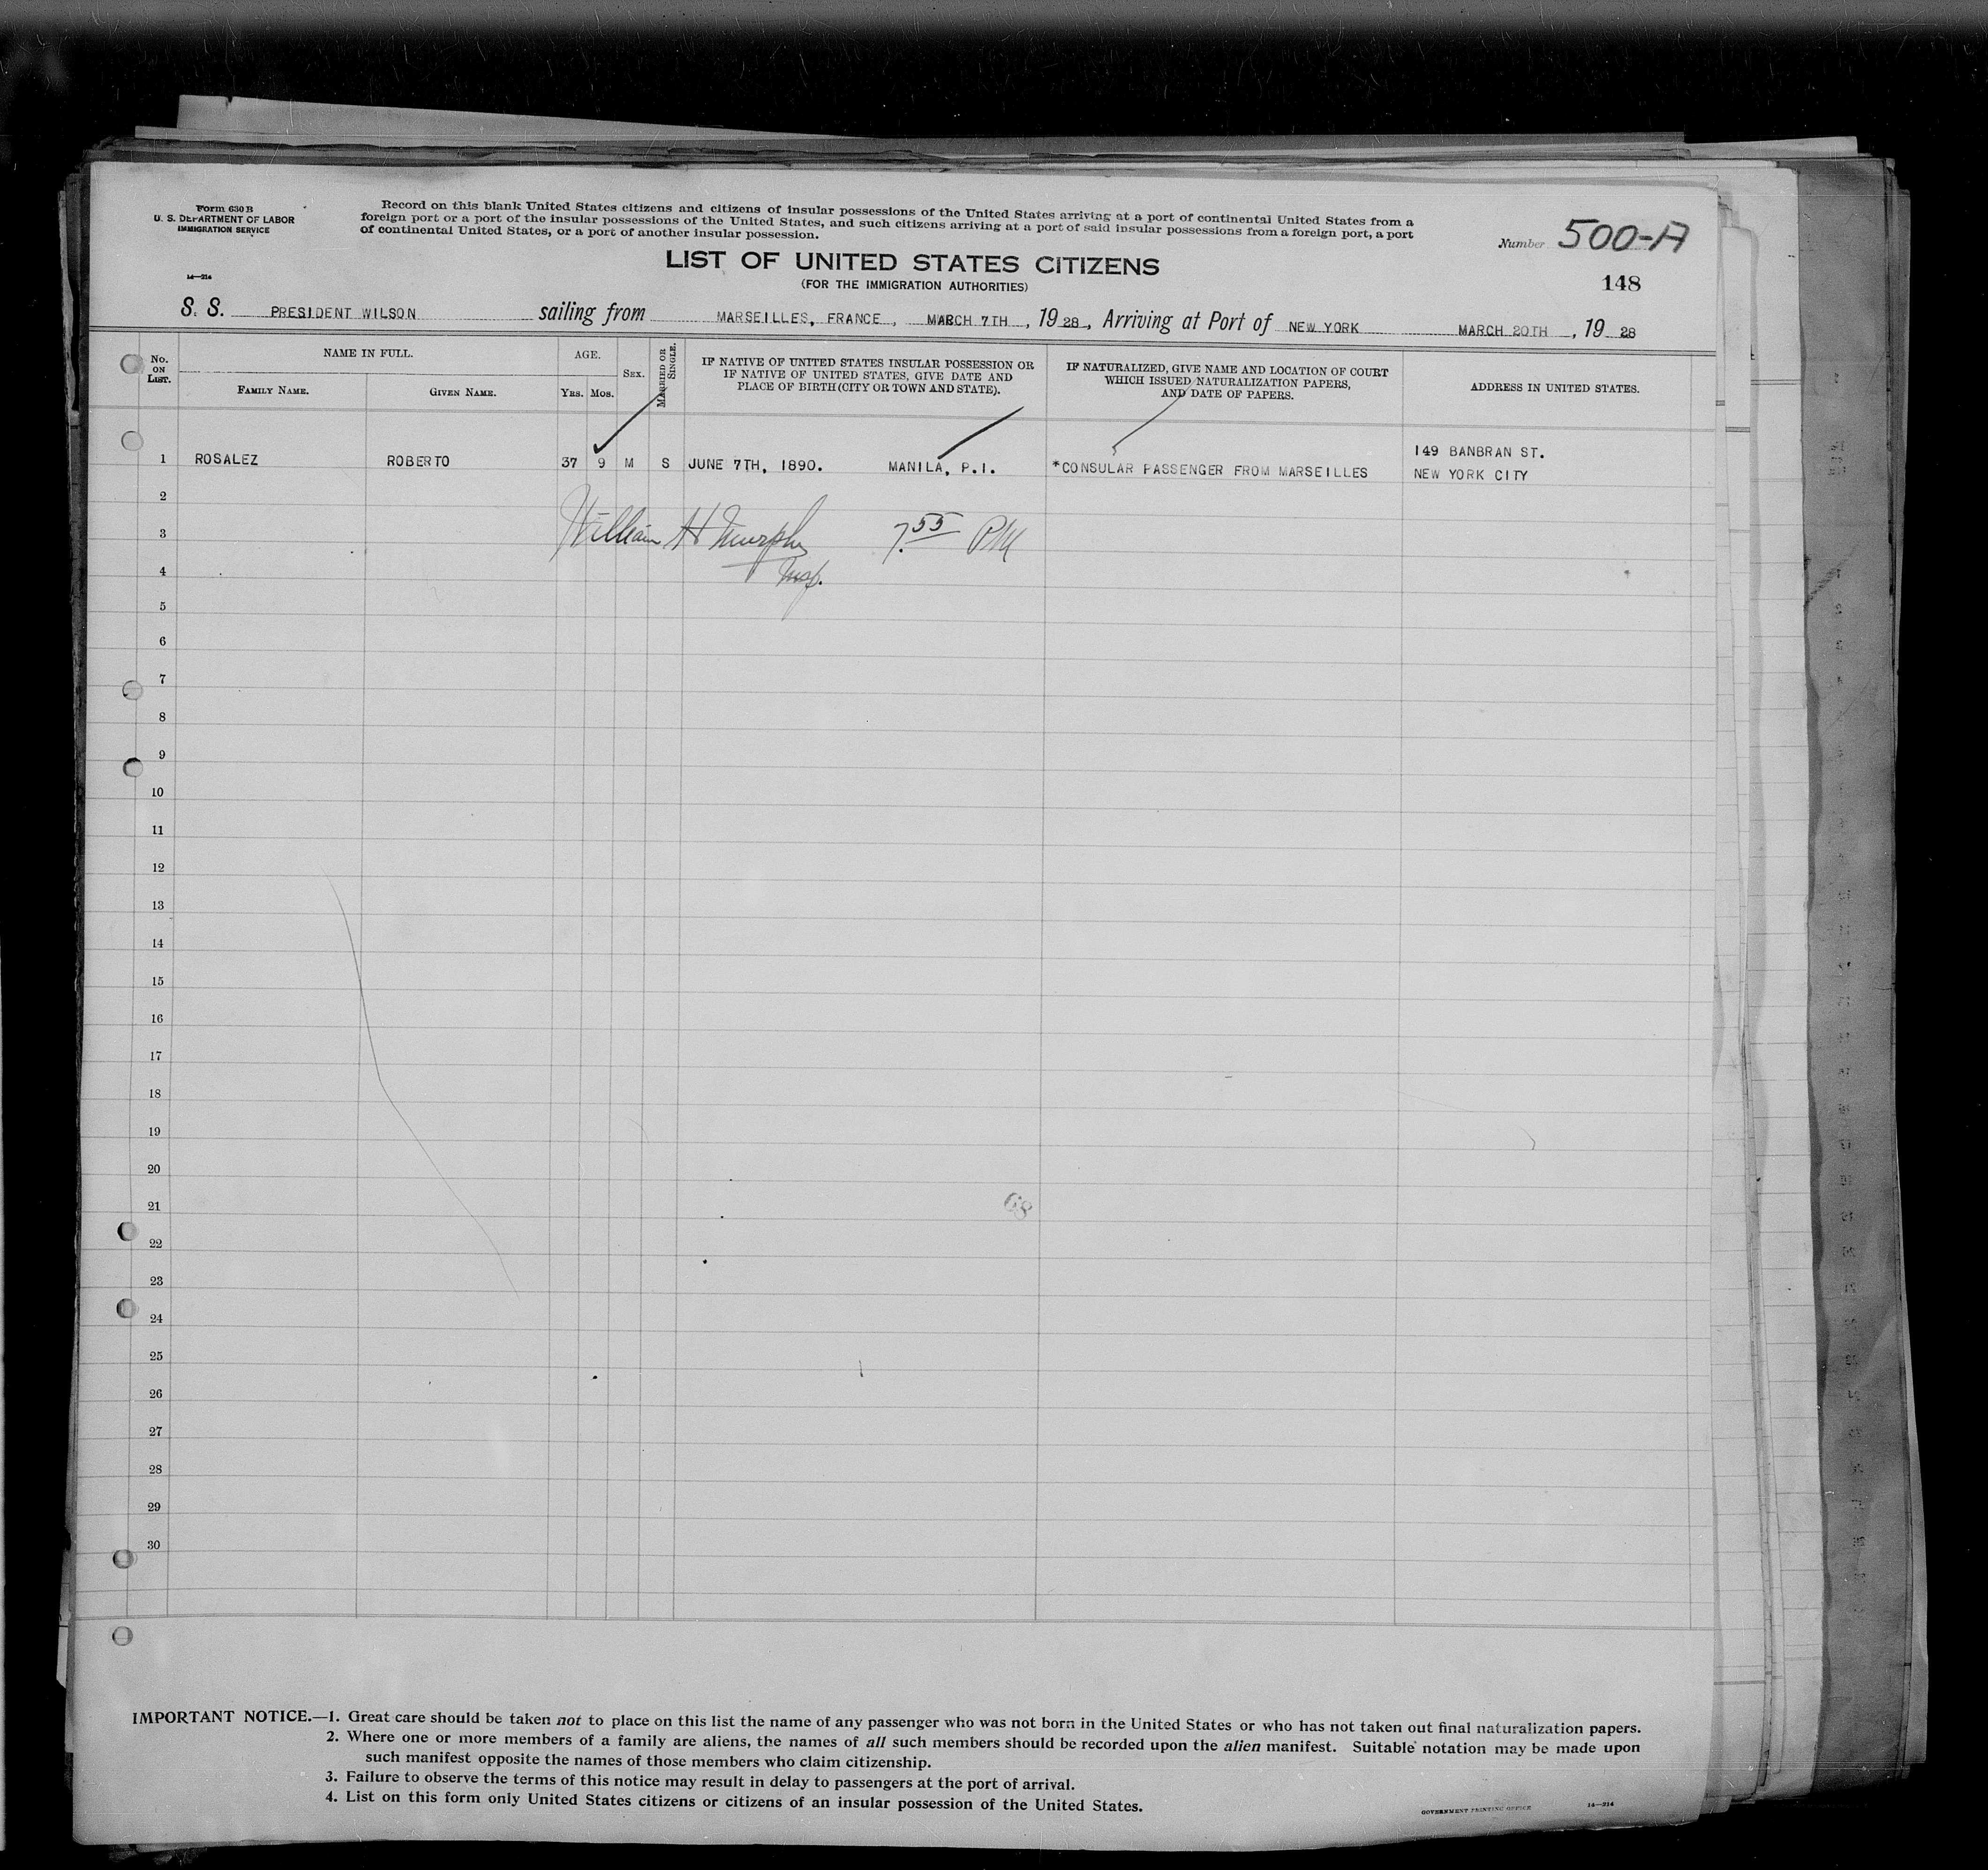 Form 630 B
U. S. DEPARTMENT OF LABOR
IMMIGRATION SERVICE
14—214
Record on this blank United States citizens and citizens of insular possessions of the United States arriving at a port of continental United States from a
foreign port or a port of the insular possessions of the United States, and such citizens arriving at a port of said insular possessions from a foreign port, a port
of continental United States, or a port of another insular possession.
Number 500-A
LIST OF UNITED STATES CITIZENS
(FOR THE IMMIGRATION AUTHORITIES)
148
S. S. PRESIDENT WILSON sailing from MARSEILLES, FRANCE, MARCH 7TH, 1928, Arriving at Port of NEW YORK MARCH 20TH, 1928
No. ON LIST.
NAME IN FULL.
FAMILY NAME.
GIVEN NAME.
AGE.
YRS. MOS.
SEX.
MARRIED OR SINGLE.
IF NATIVE OF UNITED STATES INSULAR POSSESSION OR
IF NATIVE OF UNITED STATES, GIVE DATE AND
PLACE OF BIRTH (CITY OR TOWN AND STATE).
IF NATURALIZED, GIVE NAME AND LOCATION OF COURT
WHICH ISSUED NATURALIZATION PAPERS,
AND DATE OF PAPERS.
ADDRESS IN UNITED STATES.
1 ROSALEZ ROBERTO 37 9 M S JUNE 7TH, 1890. MANILA, P.I. *CONSULAR PASSENGER FROM MARSEILLES 149 BANBRAN ST.
NEW YORK CITY
2
3 William H Murphy 7.55 PM
4 Insp.
5
6
7
8
9
10
11
12
13
14
15
16
17
18
19
20
21 68
22
23
24
25
26
27
28
29
30
IMPORTANT NOTICE.—1. Great care should be taken not to place on this list the name of any passenger who was not born in the United States or who has not taken out final naturalization papers.
2. Where one or more members of a family are aliens, the names of all such members should be recorded upon the alien manifest. Suitable notation may be made upon
such manifest opposite the names of those members who claim citizenship.
3. Failure to observe the terms of this notice may result in delay to passengers at the port of arrival.
4. List on this form only United States citizens or citizens of an insular possession of the United States.
GOVERNMENT PRINTING OFFICE 14—214